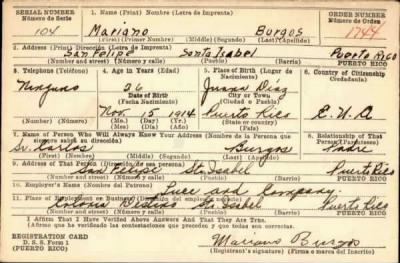 SERIAL NUMBER
Número de Serie
104
1. Name (Print) Nombre (Letra de Imprenta)
Mariano Burgos
(First) (Primer Nombre) (Middle) (Segundo) (Last) (Apellido)
ORDER NUMBER
Número de Orden
1744
2. Address (Print) Dirección (Letra de Imprenta)
San Felipe Santa Isabel Puerto Rico
PUERTO RICO
3. Telephone (Teléfono)
Ninguno
4. Age in Years (Edad)
26
Date of Birth
(Fecha Nacimiento)
Nov. 15 1914
(Mo.) (Mes) (Day) (Día) (Yr.) (Año)
5. Place of Birth (Lugar de Nacimiento)
Juana Diaz
City or Town
(Ciudad o Pueblo)
Puerto Rico
(State or Country)
6. Country of Citizenship
Ciudadanía
E.U.A
7. Name of Person Who Will Always Know Your Address (Nombre de la Persona que siempre sabrá su dirección)
Sr. Carlos Burgos
(First) (Nombre) (Middle) (Segundo) (Last) (Apellido)
8. Relationship of That Person (Parentesco)
Padre
9. Address of That Person (Dirección de esa persona)
San Felipe Sta Isabel Puerto Rico
PUERTO RICO
10. Employer's Name (Nombre del Patrono)
Luce and Company
11. Place of Employment or Business (Dirección del empleo o negocio)
Colonia Sta Isabel Puerto Rico
PUERTO RICO
I Affirm That I Have Verified Above Answers and That They Are True.
(Afirmo que he verificado las contestaciones que preceden y que todas son correctas.)
REGISTRATION CARD
D. S. S. Form 1
(PUERTO RICO)
Mariano Burgos
Registrant's signature (Firma o marca del Inscrito)